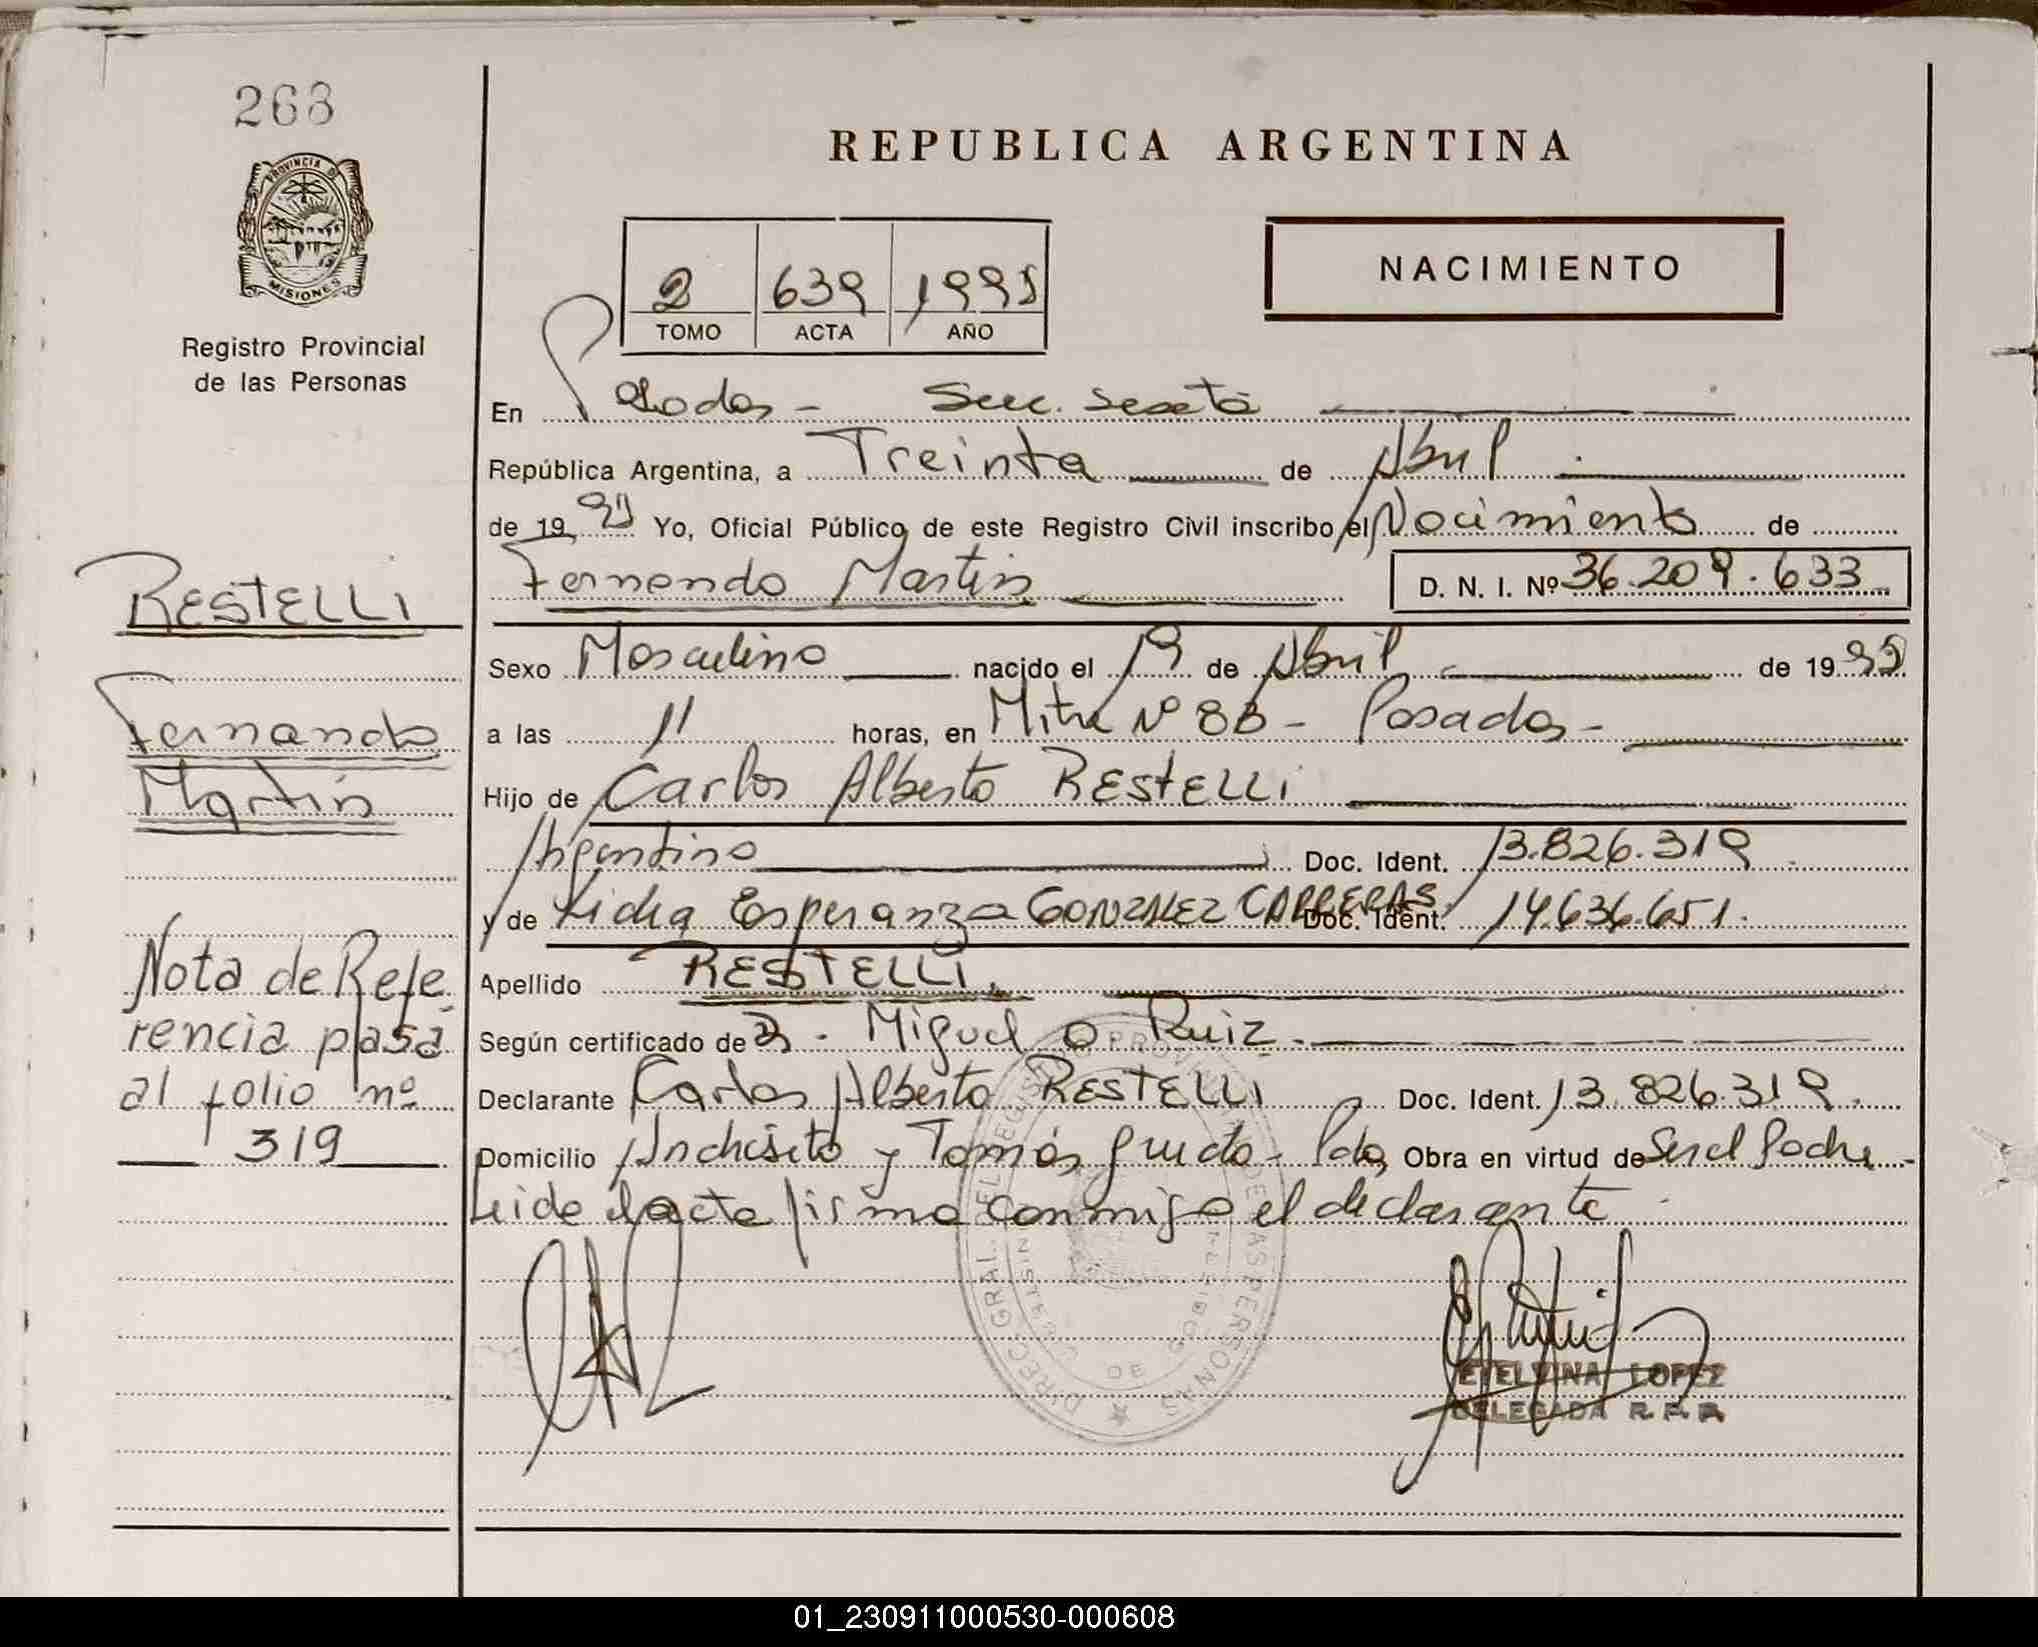 268
PROVINCIA DE
MISIONES
Registro Provincial
de las Personas
REPUBLICA ARGENTINA
2 639 1991
TOMO ACTA AÑO
NACIMIENTO
En Posadas - Secc. sexta
República Argentina, a Treinta de Abril
de 1991 Yo, Oficial Público de este Registro Civil inscribo el Nacimiento de
Fernando Martin D. N. I. Nº 36.209.633
Sexo Masculino nacido el 19 de Abril de 19
a las 11 horas, en Mitre Nº 88 - Posadas -
Hijo de Carlos Alberto RESTELLI
Argentino Doc. Ident. 13.826.319
y de Lidia Esperanza GONZALEZ CARRERAS Doc. Ident. 14.636.651.
Apellido RESTELLI.
Según certificado de Miguel O Ruiz.
Declarante Carlos Alberto RESTELLI Doc. Ident. 13.826.319.
Domicilio y Tomás Guido - Pdas Obra en virtud de Ser el Padre
Leida el acta firma conmigo el declarante
RESTELLI
Fernando
Martin
Nota de Refe
rencia pasa
al folio nº
319
DIREC. GRAL. DEL REGISTRO PROV. DE LAS PERSONAS
MINISTERIO DE GOBIERNO
ETELVINA LOPEZ
DELEGADA R.P.P.
01_230911000530-000608